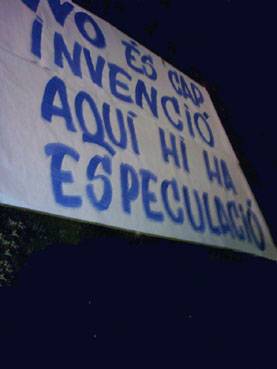 NO ÉS CAP
INVENCIÓ
AQUÍ HI HA
ESPECULACIÓ